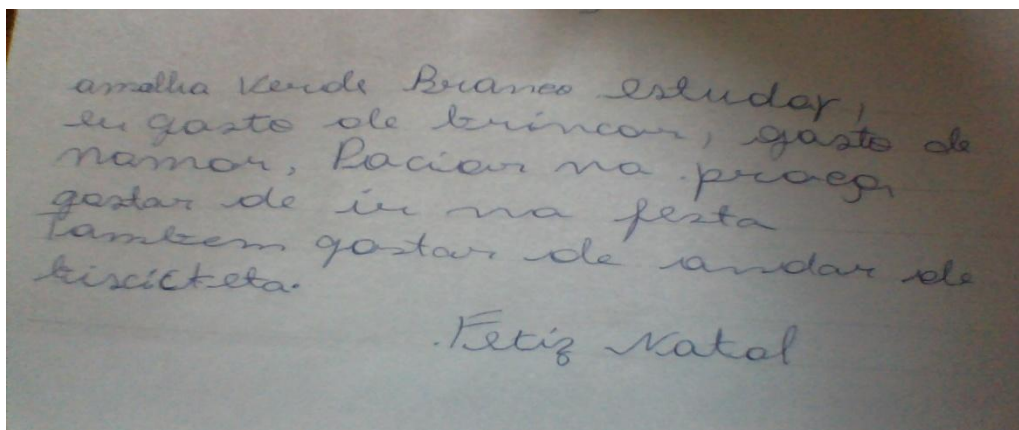 amalha Verde Branco estudar,
eu gosto de brincar, gosto de
namor, Paciar na praça
gostar de ir na festa
Tambem gostar de andar de
biscicteta.
Fetiz Natal